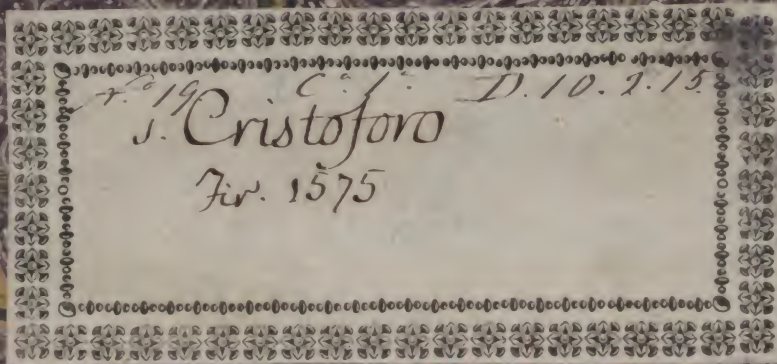 n.º 19 C.º 1.º D. 10. 2. 15.
S. Cristoforo
Fir. 1575